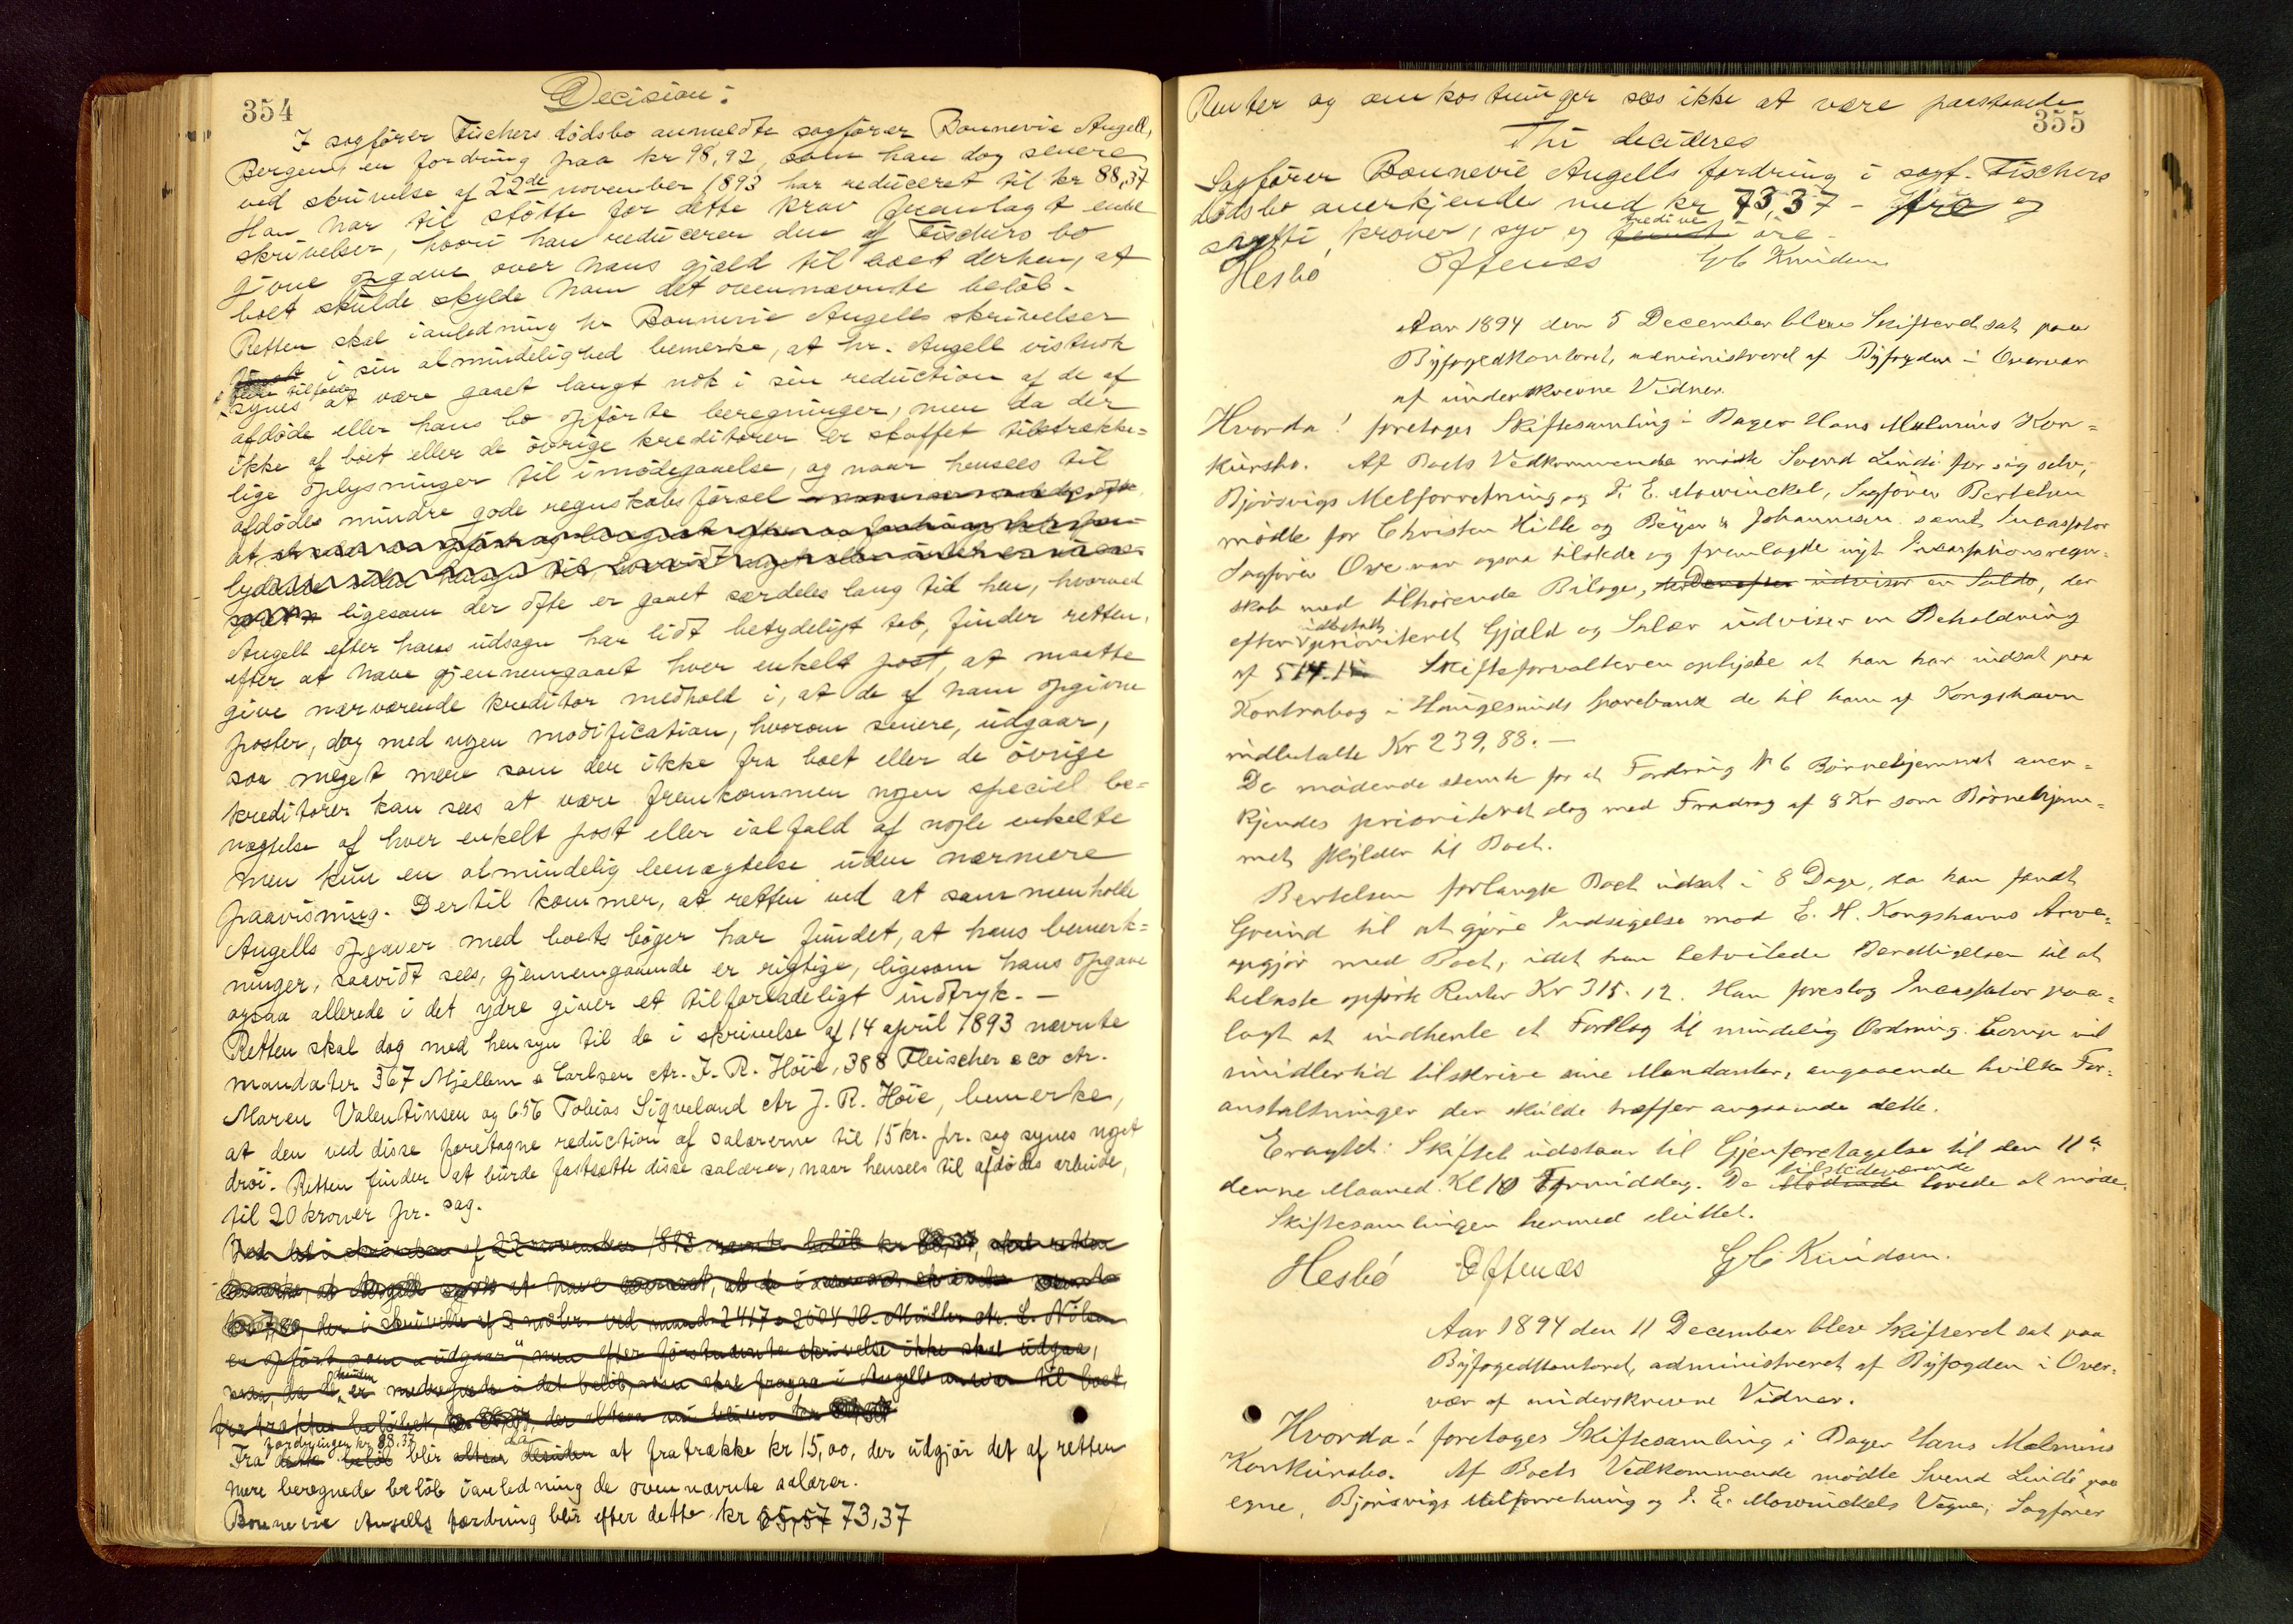 354
Decision:
I sagfører Fischers dödsbo anmeldte sagfører Bonnevie Angell,
Bergen, en fordring paa kr 98,92, som han dog senere
ved skrivelse af 22de november 1893 har reduceret til kr 88,37
Han har til støtte for dette krav fremlagt endel
skrivelser, hvori han reducerer den af Fischers bo
givne opgave over hans gjæld til boet derhen, at
boet skulde skylde ham det ovennævnte beløb.
Retten skal i anledning hr Bonnevie Angells skrivelser
i sin almindelighed bemerke, at hr. Angell vistnok
i flere tilfælde
synes at være gaaet langt nok i sin reduction af de af
afdøde eller hans bo opførte beregninger, men da der
ikke af boet eller de øvrige kreditorer er skaffet tilstrække-
lige oplysninger til imødegaaelse, og naar hensees til
afdødes mindre gode regnskabsførsel
ligesom der ofte er gaaet særdeles lang tid hen, hvorved
Angell efter hans udsagn har lidt betydeligt tab, finder retten,
efter at have gjennemgaaet hver enkelt post, at maatte
give nærværende kreditor medhold i, at de af ham opgivne
poster, dog med nogen modification, hvorom senere, udgaar,
saa meget mere som der ikke fra boet eller de øvrige
kreditorer kan sees at være fremkommen nogen speciel be-
nægtelse af hver enkelt post eller ialfald af nogle enkelte
men kun en almindelig benægtelse uden nærmere
paavisning. Dertil kommer, at retten ved at sammenholde
Angells opgaver med boets bøger har fundet, at hans bemerk-
ninger, saavidt sees, gjennemgaaende er rigtige, ligesom hans opgave
ogsaa allerede i det ydre giver et tilforladeligt indtryk. —
Retten skal dog med hensyn til de i skrivelse af 14 april 1893 nævnte
mandater 367 Mjellem & Carlsen ctr. J. R. Höie, 388 Fleischer & co ctr.
Maren Valentinsen og 656 Tobias Siqveland ctr J. R. Höie, bemerke,
at den ved disse foretagne reduction af salærerne til 15 kr. pr. sag synes noget
drøi. Retten finder at burde fastsætte disse salærer, naar hensees til afdødes arbeide,
til 20 kroner pr. sag.
Ved det i skrivelse af 22 november 1893 nævnte beløb kr 88,37, skal retten
der i skrivelse af 2 novbr. ved mand. 2417 & 2604 O. Müller ctr. L. Nilsen
er opført som "udgaar", men efter førstnævnte skrivelse ikke skal udgaa,
fordringen kr 88.37 da
Fra dette beløb blir altsaa at fratrække kr 15,00, der udgjør det af retten
mere beregnede beløb i anledning de ovennævnte salærer.
Bonnevie Angells fordring blir efter dette kr 73,37
355
Renter og omkostninger sees ikke at være paastaaede
Thi decideres
Sagfører Bonnevie Angells fordring i sagf. Fischers
dødsbo anerkjendes med kr 73,37 - tre og
tredive
sytti kroner, syv og øre -
Hesbö Offenæs G C Knudsen
Aar 1894 den 5 December blev Skifteret sat paa
Byfogedkontoret, administreret af Byfogden i Overvær
af underskrevne Vidner.
Hvorda! foretages Skiftesamling i Bager Hans Malmins Kon-
kursbo. Af Boets Vedkommende mødte Svend Lindö for sig selv,
Bjørsvigs Melforretning og J. E. Mowinckel, Sagfører Bertelsen
mødte for Christen Hille og Beyer & Johannesen samt Incassator
Sagfører Owe var ogsaa tilstede og fremlagde nyt Incassationsregn-
skab med tilhørende Bilage, der Derefter udviser en Saldo, der
indbetalt
efter prioriteret Gjæld og Salær udviser en Beholdning
af 514.15 Skifteforvalteren oplyste at han har indsat paa
Kontrabog i Haugesunds Sparebank de til ham af Kongshavn
indbetalte Kr 239,88. —
De mødende stemte for at Fordring № 6 Børnehjemmet aner-
kjendes prioriteret dog med Fradrag af 8 Kr som Børnehjem-
met skylder til Boet.
Bertelsen forlangte Boet udsat i 8 Dage, da han fandt
Grund til at gjøre Indsigelse mod E. H. Kongshavns Arve-
opgjør med Boet, idet han betvilede Berettigelsen til at
belaste opførte Renter Kr 315.12. Han foreslog Incassator paa-
lagt at indhente et Forslag til mindelig Ordning. vil
imidlertid tilskrive sine Mandanter, angaaende hvilke For-
anstaltninger der skulde træffes angaaende dette.
Eragtet: Skiftet udstaar til Gjenforetagelse til den 11te
tilstedeværende
denne Maaned Kl 10 Formiddag. De Mødende lovede at møde.
Skiftesamlingen hermed sluttet.
Hesbö Offenæs G C Knudsen.
Aar 1894 den 11 December blev Skifteret sat paa
Byfogedkontoret, administreret af Byfogden i Over-
vær af underskrevne Vidner.
Hvorda! foretages Skiftesamling i Bager Hans Malmins
Konkursbo. Af Boets Vedkommende mødte Svend Lindö paa
egne, Bjørsvigs Melforretning og J. E. Mowinckels Vegne, Sagfører